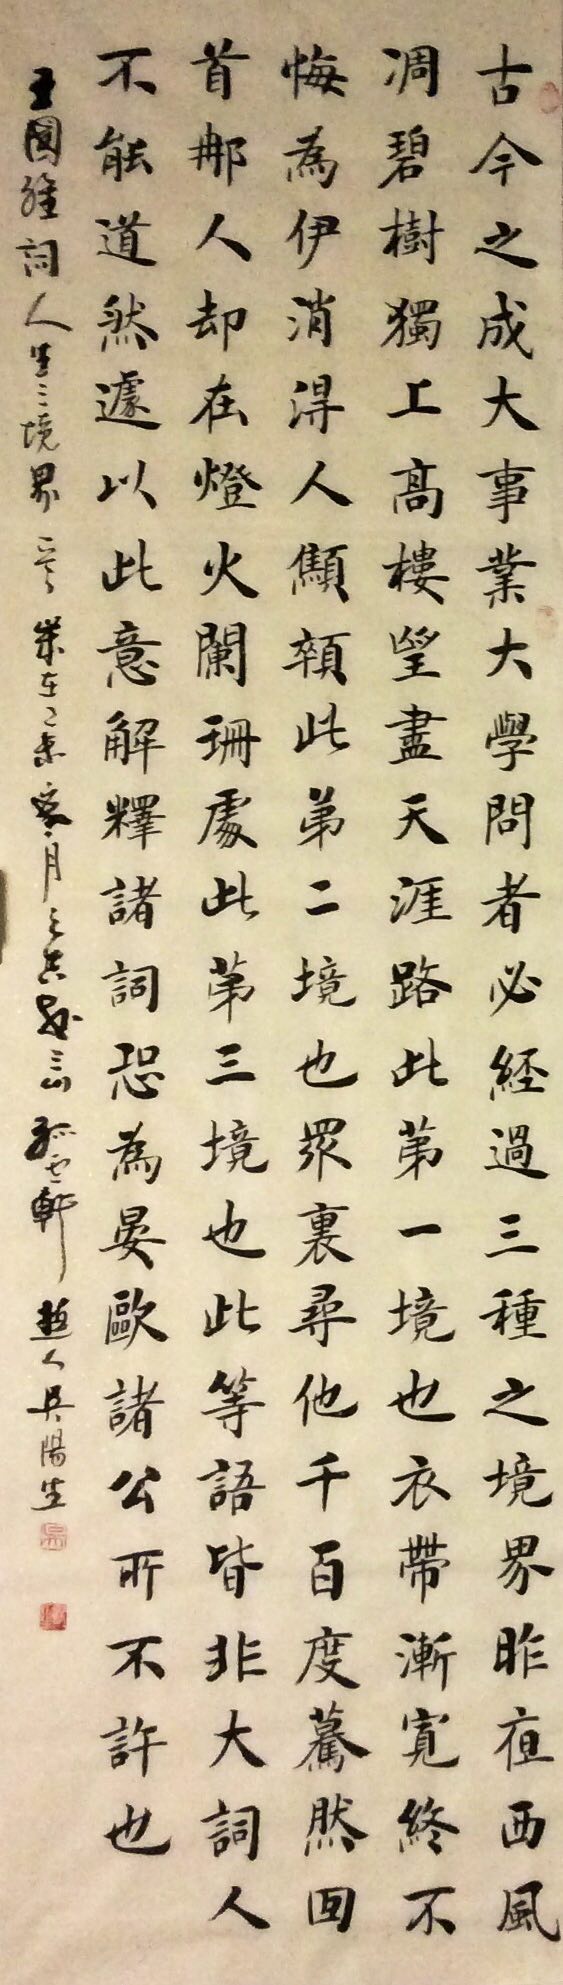 古今之成大事業大學問者必經過三種之境界昨夜西風
凋碧樹獨上高樓望盡天涯路此第一境也衣帶漸寬終不
悔為伊消得人顦顇此第二境也眾裏尋他千百度驀然回
首那人却在燈火闌珊處此第三境也此等語皆非大詞人
不能道然遽以此意解釋諸詞恐為晏歐諸公所不許也
王國維詞人生三境界 歲在 月 軒 吳陽生